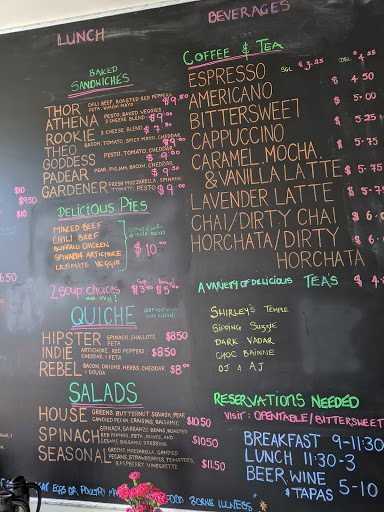 LUNCH
BAKED
SANDWICHES
THOR CHILI BEEF, ROASTED RED PEPPERS, FETA, $9.50
ATHENA PESTO, BAKED VEGGIES, 3 CHEESE BLEND $9.00
ROOKIE 3 CHEESE BLEND $7.50
THEO BACON, TOMATO, SPICY MAYO, CHEDDAR $9.00
GODDESS PESTO, TOMATO, CHEDDAR $9.00
PADEAR PEAR, BACON, CHEDDAR $9.50
GARDENER FRESH MOZZARELLA, SPINACH, TOMATO, PESTO $9.00
DELICIOUS PIES
MINCED BEEF
CHILI BEEF
BUFFALO CHICKEN
SPINACH ARTICHOKE
ULTIMATE VEGGIE
served with a side salad
$10.00
2 SOUP CHOICES
QUICHE
HIPSTER SPINACH, SHALLOTS, FETA $8.50
INDIE ARTICHOKE, RED PEPPERS, CHEDDAR, FETA $8.50
REBEL BACON, ONIONS, HERBS, CHEDDAR, GOUDA
SALADS
HOUSE GREENS, BUTTERNUT SQUASH, PEAR, CANDIED PECAN, CRAISINS, BALSAMIC $10.50
SPINACH SPINACH, GARBANZO BEANS, ROASTED RED PEPPERS, FETA, OLIVES, AND BALSAMIC DRESSING $10.50
SEASONAL GREENS, MOZZARELLA, CANDIED PECANS, STRAWBERRIES, TOMATOES, RASPBERRY VINEGRETTE $11.50
BEVERAGES
COFFEE & TEA
ESPRESSO SGL $3.25 DBL $4.25
AMERICANO
BITTERSWEET
CAPPUCCINO
CARAMEL, MOCHA,
& VANILLA LATTE
LAVENDER LATTE
CHAI/DIRTY CHAI
HORCHATA/DIRTY
HORCHATA
A VARIETY OF DELICIOUS TEA'S
SHIRLEY'S TEMPLE
SIPPING SUZYE
DARK VADAR
CHOC BAINNE
OJ & AJ
RESERVATIONS NEEDED
VISIT: OPENTABLE/BITTERSWEET
BREAKFAST 9-11:30
LUNCH 11:30-3
BEER, WINE
& TAPAS 5-10
EGGS OR POULTRY FOOD BORNE ILLNESS"